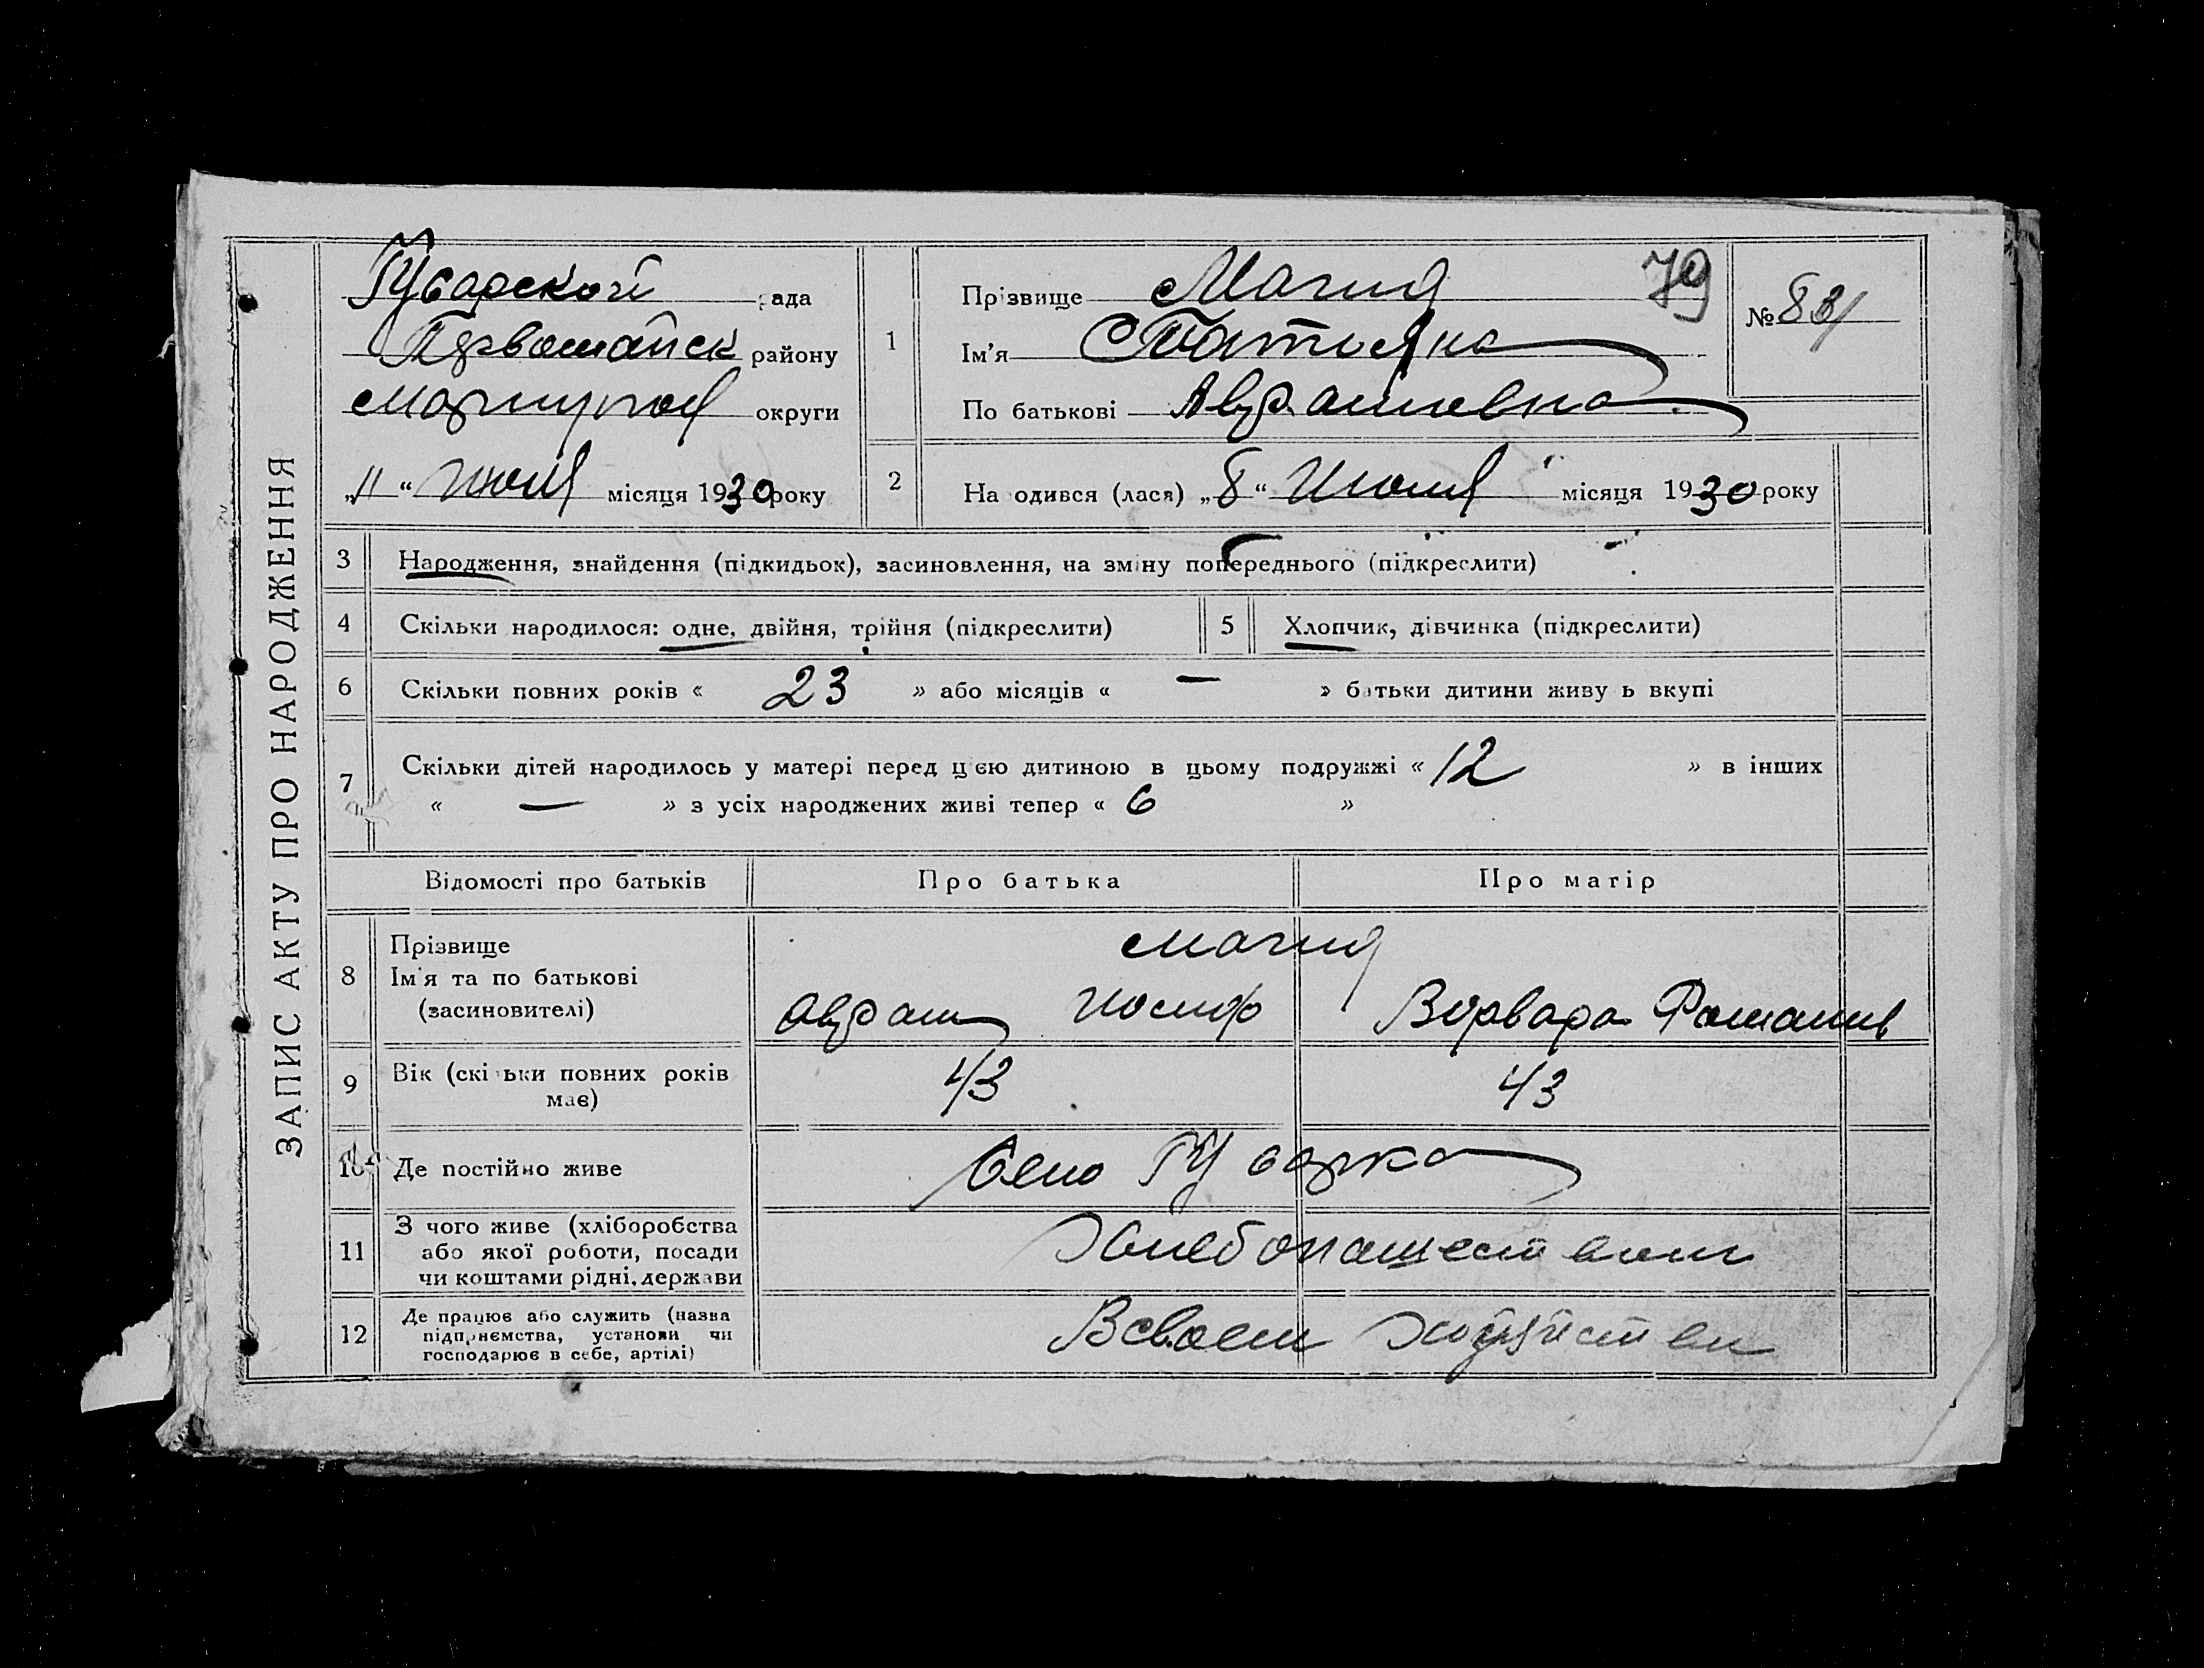 ЗАПИС АКТУ ПРО НАРОДЖЕННЯ
Гусарской рада
Первомайск району
Мариупол округи
„11“ июля місяця 1930 року
1
Прізвище Магия
Ім'я Татияна
По батькові Аврамовна
79
№ 83
2
На одився (лася) „8“ Июля місяця 1930 року
3 Народження, знайдення (підкидьок), засиновлення, на зміну попереднього (підкреслити)
4 Скільки народилося: одне, двійня, трійня (підкреслити)
5 Хлопчик, дівчинка (підкреслити)
6 Скільки повних років « 23 » або місяців « — » батьки дитини живу ь вкупі
7 Скільки дітей народилось у матері перед цією дитиною в цьому подружжі « 12 » в інших
« — » з усіх народжених живі тепер « 6 »
Відомості про батьків Про батька Про матір
8 Прізвище
Ім'я та по батькові
(засиновителі)
Магия
Аврам Иосиф Варвара Романив
9 Вік (скільки повних років
має)
43 43
10 Де постійно живе Село Гусарка
11 З чого живе (хліборобства
або якої роботи, посади
чи коштами рідні, держави
Хлебопашеством
12 Де працює або служить (назва
підприємства, установи чи
господарює в себе, артілі)
Всвоем